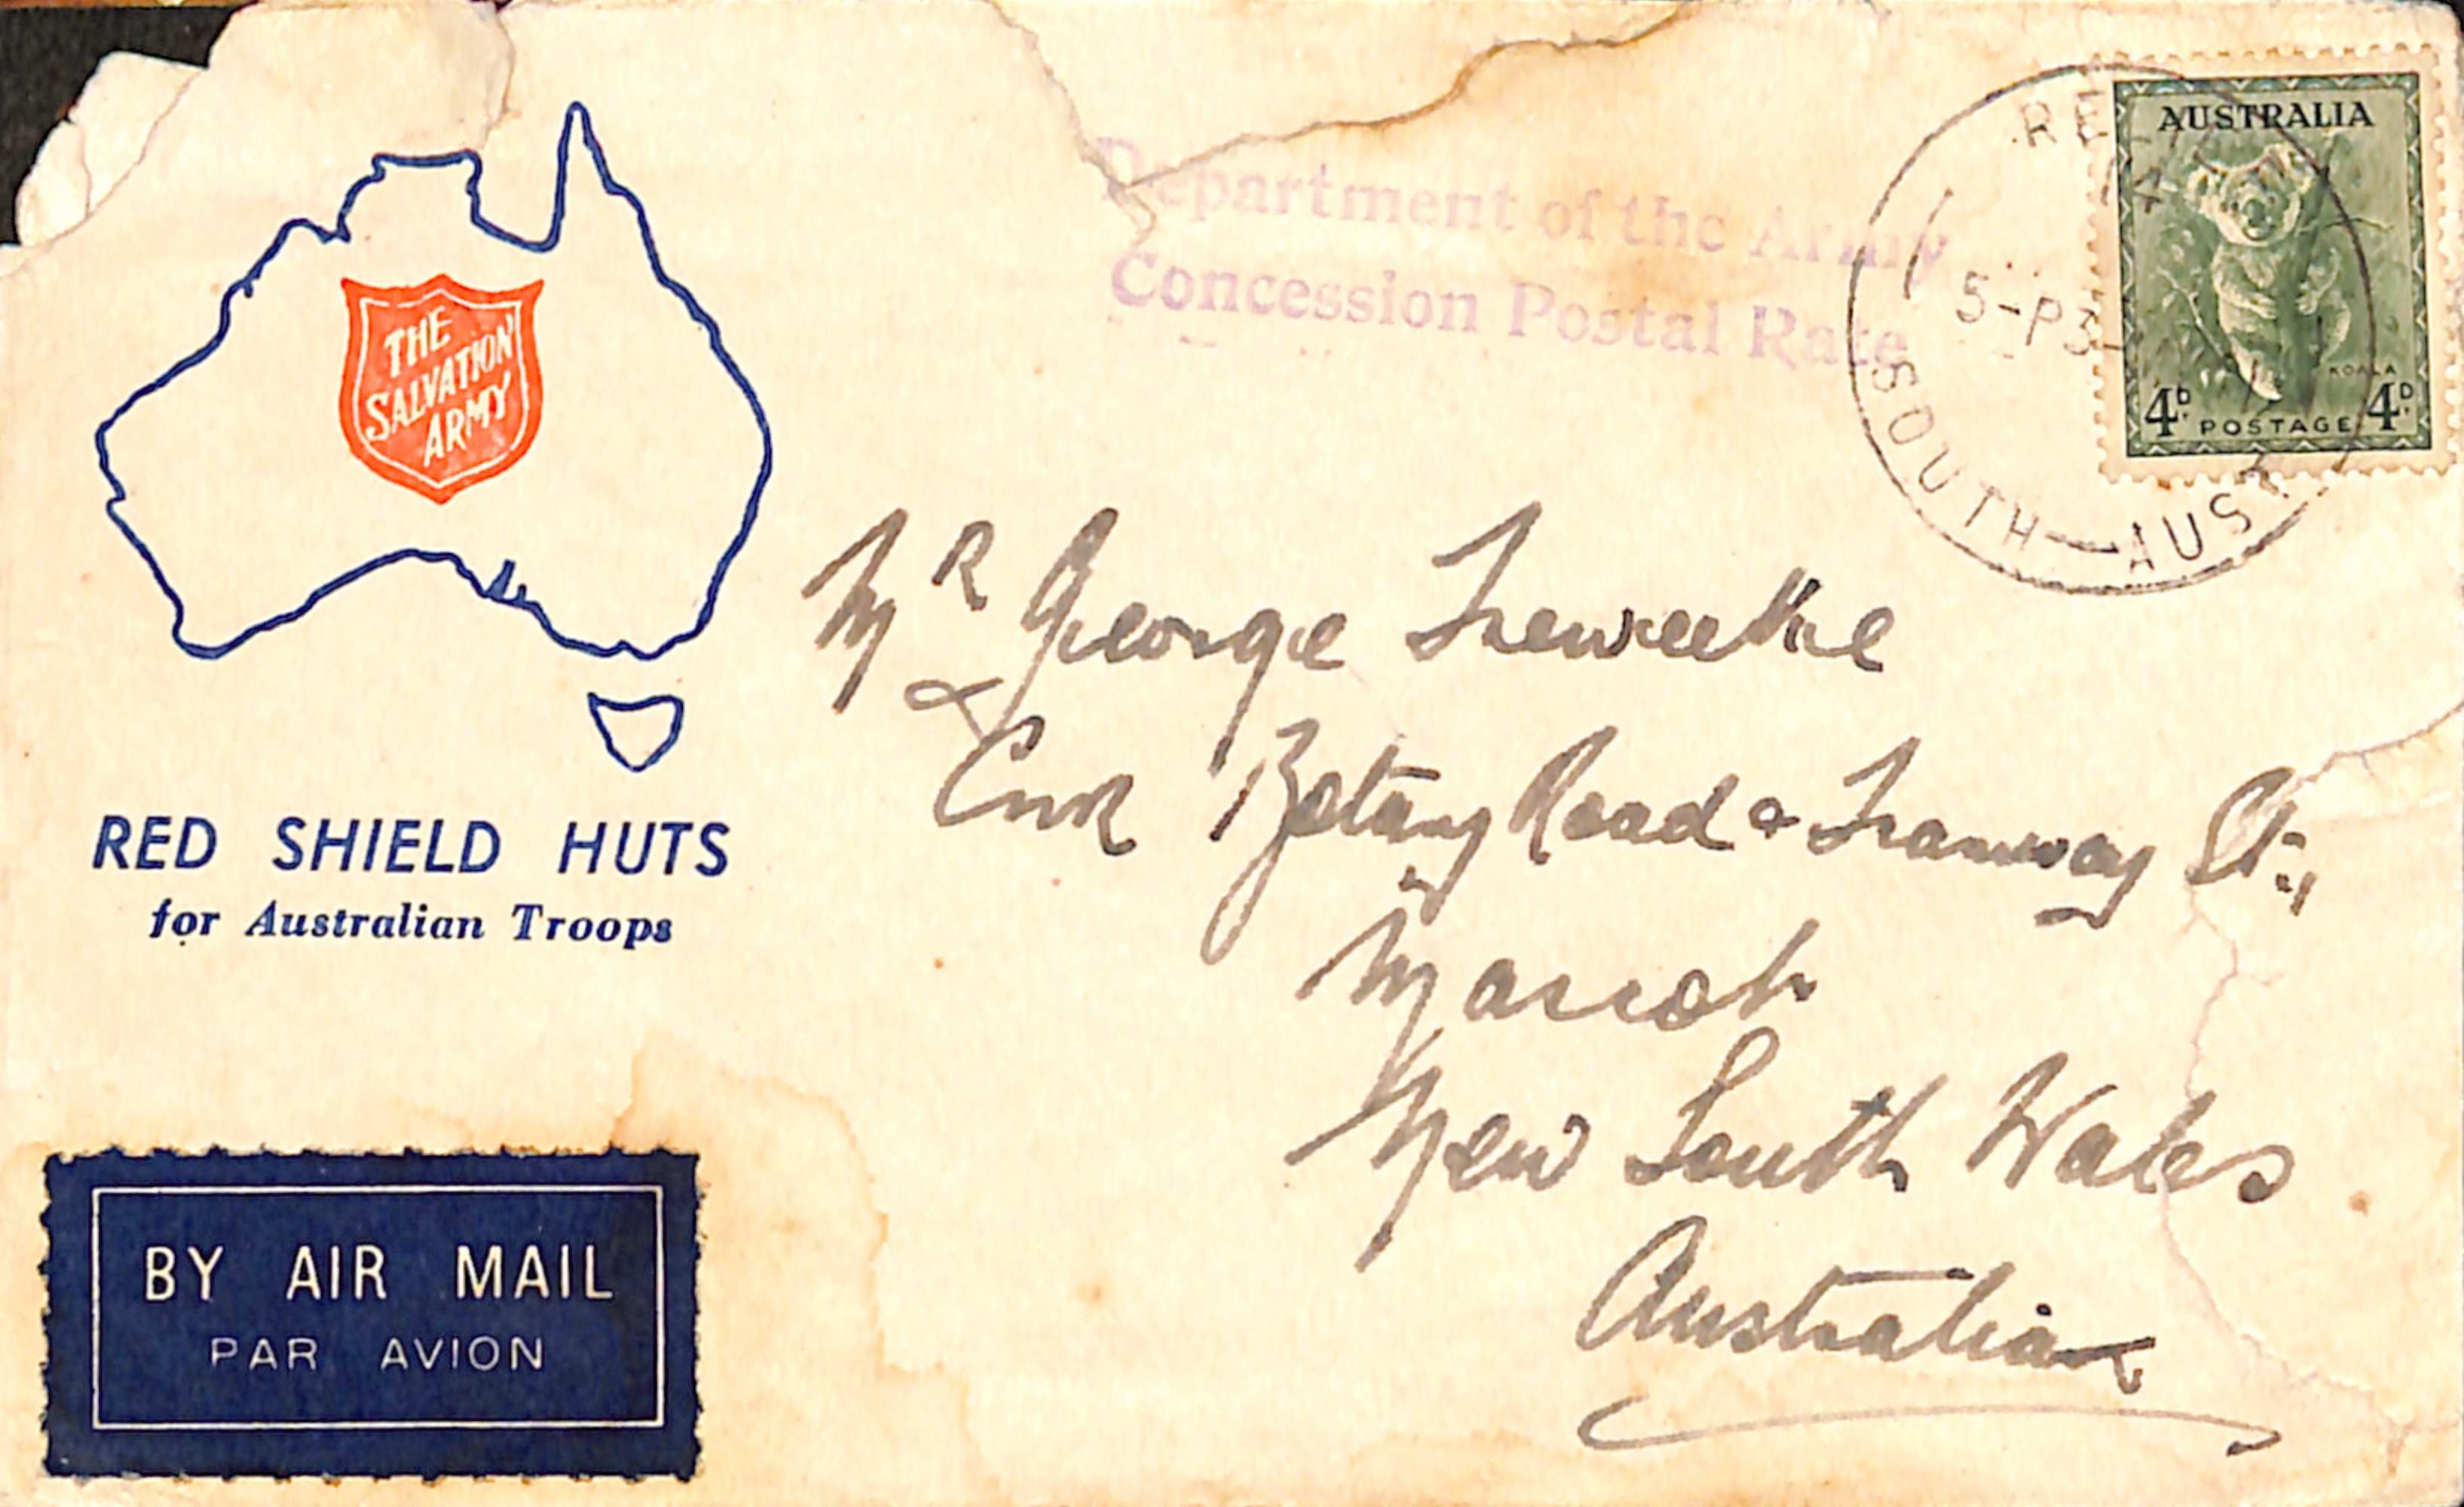 THE
SALVATION
ARMY
RED SHIELD HUTS
for Australian Troops
BY AIR MAIL
PAR AVION
Department of the Army
Concession Postal Rate
5-P3
SOUTH-AUST
AUSTRALIA
KOALA
4D. POSTAGE 4D.
Mr George Treweeke
Cnr Botany Road & Tramway St.,
Mascot
New South Wales
Australia